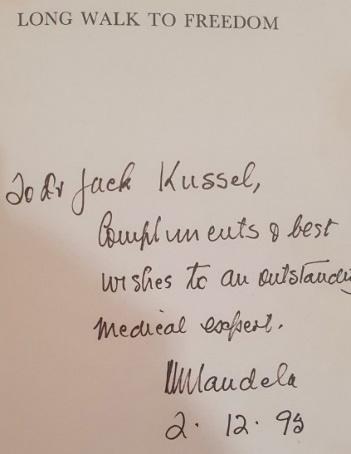 LONG WALK TO FREEDOM
To Dr Jack Kussel,
Compliments & best
wishes to an outstanding
medical expert.
NMandela
2. 12. 95